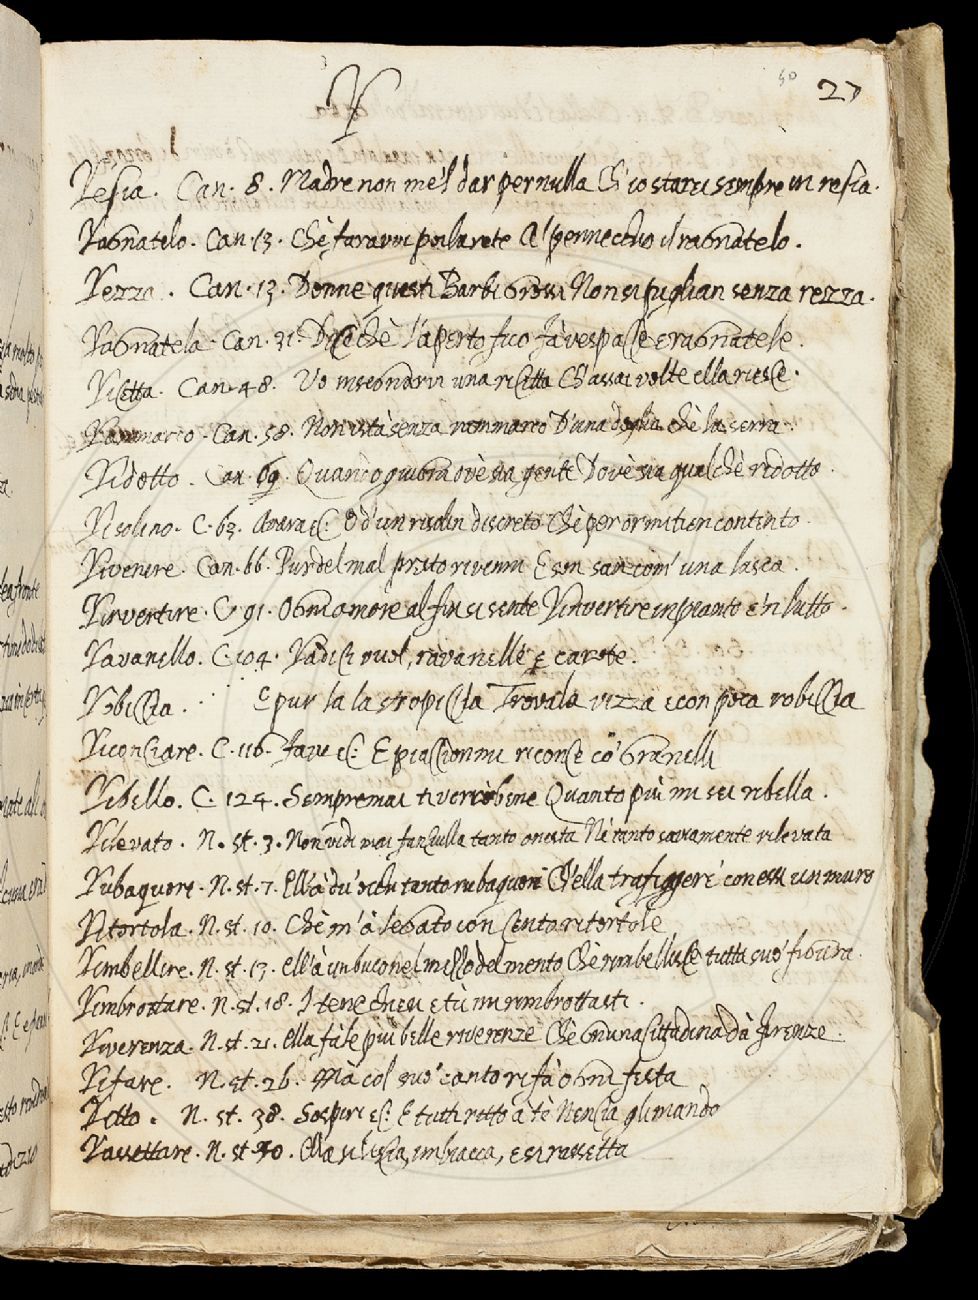 R
50
27
Resia. Can. 8. Madre non me'l dar per nulla Ch'io starei sempre in resia.
Ragnatelo. Can. 13. Chè faravvi poi la rete A' pennecchio il ragnatelo.
Rezza. Can. 13. Donne questi Barbi grossi Non si piglian senza rezza.
Ragnatela. Can. 31. Dicè chè l'aperto fico Fà vespa ... e ragnatele.
Ricetta. Can. 48. Vo insegnarvi una ricetta Ch'assai volte ella riesce.
Rammarco. Can. 58. Non istà senza rammarco D'una doglia chè la serra.
Ridotto. Can. 69. Quando giubila ov'è sta gente Dov'è sia qualchè ridotto.
Risolino. C. 63. ec: O d'un risolin discreto Chè per or mi tien contento.
Rivenire. Can. 66. Pur del mal presto rivenni E son san com' una lasca.
Rinvertire. C. 91. Ogni amore al fin si sente Rinvertire in pianto e 'n lutto.
Ravanello. C. 104. Radici vuol, ravanelle e carote.
Robiccia. E pur la la stropiccia Trovala vizza e con poca robiccia
Riconciare. C. 116. ec: E piaccion mi riconce co' granelli
Ribello. C. 124. Sempremai ti verrò bene Quanto più mi sei ribella.
Rilevato. N. st. 3. Non vidi mai fanciulla tanto onesta Nè tanto saviamente rilevata
Rubaquori. N. st. 7. Ell'à du' occhi tanto rubaquori Ch'ella trafiggere' con essi un muro
Ritortola. N. st. 10. Chè m'à legato con cento ritortole
Rimbellire. N. st. 13. Ell'à un buco nel mezzo del mento Chè rimbellisce tutta suo' figura.
Rimbrottare. N. st. 18. I tene chiesi e tù mi rimbrottasti.
Riverenza. N. st. 21. Ella fà le più belle riverenze Che gnuna Cittadina dà Firenze.
Rifare. N. st. 26. Mà col suo' canto rifà ogni festa
Ritto. N. st. 38. Sospiri ec: E tutti ritto a tè Nencia gli mando
Rassettare. N. st. 40. Ella si liscia, imbiacca, e si rassetta